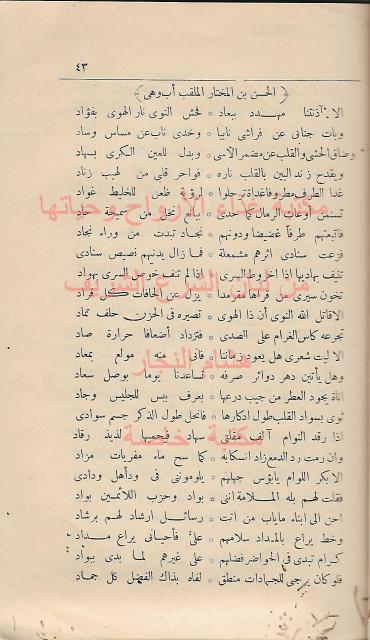 ٤٣
﴿ الحسن بن المختار الملقب أب وهى ﴾
الا آذنتنا مهدد ببعاد * فحش النوى نار الهوى بفؤاد
وبات جنابى عن فراشى نابيا * وخدى ناب عن مساس وساد
وضاق الحشى والقلب عن مضمر الاسى * وبدل للعين الكرى بسهاد
ويقدح زند البين بالقلب ناره * فواحر قلبى من لهيب زناد
غدا الطرف مطروفا غداة ترحلوا * لرؤية ظعن للخليط غواد
تسنمن أوعات الرمال كما حدى * يبانع نخل من سميحة حاد
فاتبعتهم طرفا غضيضا ودونهم * نجاد تبدت من وراء نجاد
فزعت سنادى اثرهم مشمعلة * فما زال يدنيهم نصيص سنادى
تنيف بهاديها اذا اخروط السرى * اذا لم تنف خوص السرى بهواد
تخون سيرى من قراها مقرمدا * يزل عن الحافات كل قراد
الا قاتل الله النوى أن ذا الهوى * تصيره فى الحزن حلف تماد
تجرعه كاس الغرام على الصدى * فتزداد أضعافا حرارة صاد
الا ليت شعرى هل يعود زماننا * فانى منه مولع بمعاد
وهل يأتين دهر دوائر صرفه * تساعدنا يوما بوصل سعاد
اناة يجود العطر من جيب درعها * بعرف يبس للجليس وجاد
ثوى بسواد القلب طول ادكارها * فانحل طول الذكر جسم سوادى
اذا رقد النوام آلف مقلتى * سهاد فيحميها لذيذ رقاد
وان رمت رد الدمع زاد انسكابه * كما سح ماء مفريات مزاد
الا بكر اللوام يابؤس جهلهم * يلوموننى فى ودأهل ودادى
فقلت لهم بله الملامة اننى * بواد وحزب اللائمين بواد
احن الى ابناء ماياب من أتت * رسائل ارشاد لهم برشاد
وخط يراع بالمداد سلامهم * على فأحيانى يراع مداد
كرام تبدى فى الحواضر فضلهم * على غيرهم لما بدى ببواد
فلو كان يرجى للجمادات منطق * لفاه بذاك الفضل كل جماد
مكتبة غذاء الأرواح وحياتها
من لبان الشرع الشريف
هشام النجار
مكتبة خاصة